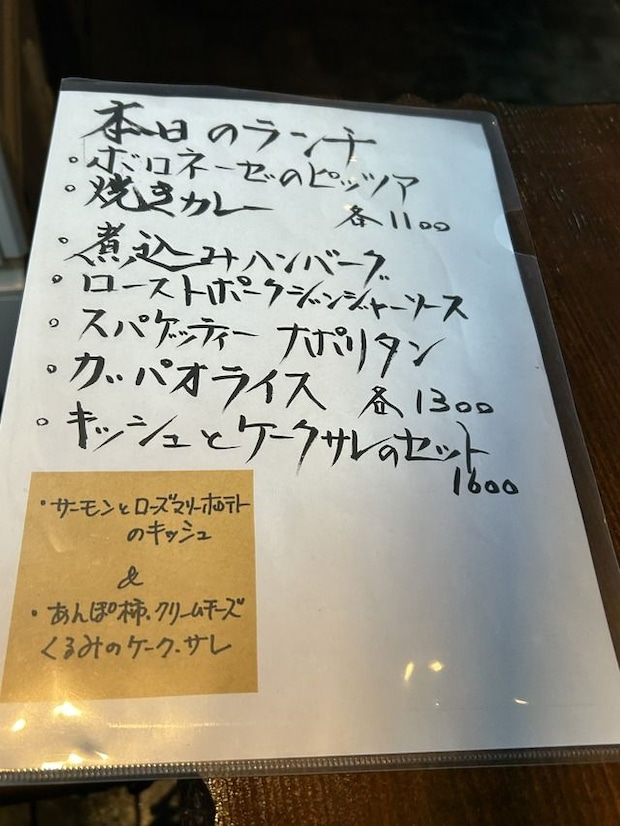 本日のランチ
・ボロネーゼのピッツァ
・焼きカレー 各1100
・煮込みハンバーグ
・ローストポークジンジャーソース
・スパゲッティー ナポリタン
・ガパオライス 各1300
・キッシュとケークサレのセット
1600
・サーモンとローズマリーポテト
のキッシュ
&
・あんぽ柿、クリームチーズ
くるみのケーク・サレ